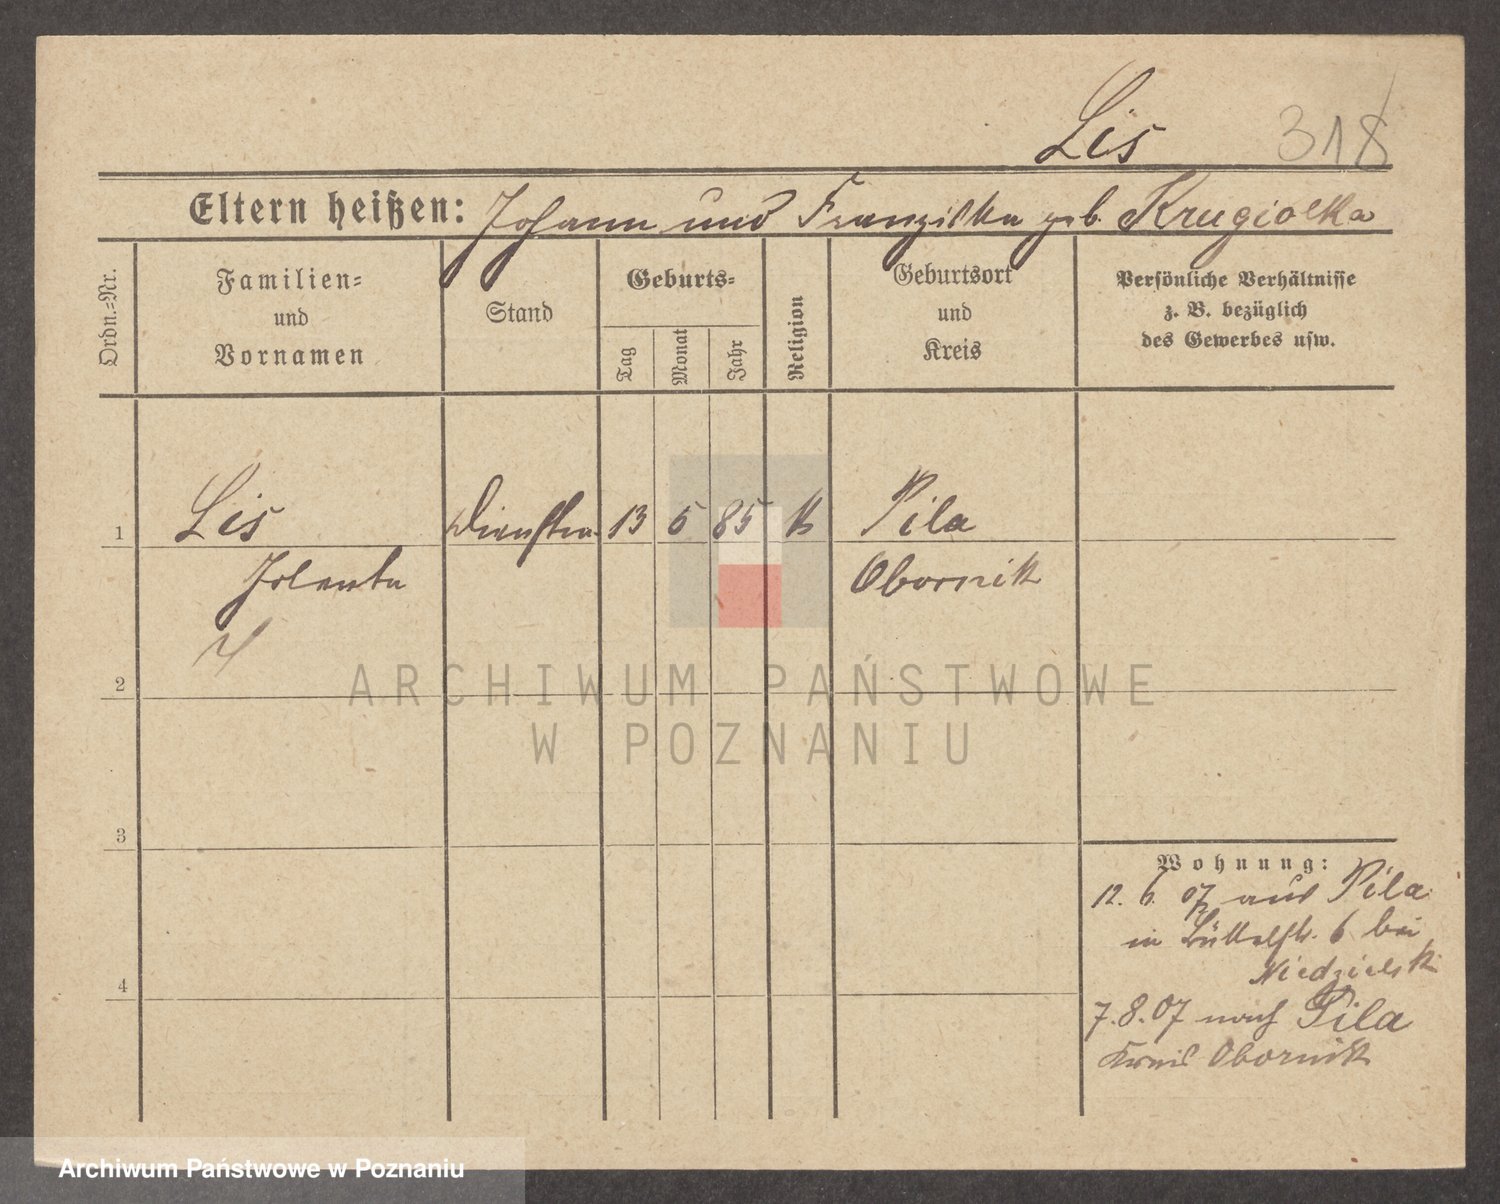 Lis 318
Eltern heißen: Johann und Franziska geb. Krugiolka
Ordn.-Nr.
Familien-
und
Vornamen
Stand
Geburts-
Tag
Monat
Jahr
Religion
Geburtsort
und
Kreis
Persönliche Verhältnisse
z. B. bezüglich
des Gewerbes usw.
1 Lis 13 5 85 K Pila
Jolenta Obornik
2
3
4
Wohnung:
12. 6. 07 aus Pila
in 6 bei
Niedzielski
7.8.07 nach Pila
Kreis Obornik
ARCHIWUM PAŃSTWOWE
W POZNANIU
Archiwum Państwowe w Poznaniu